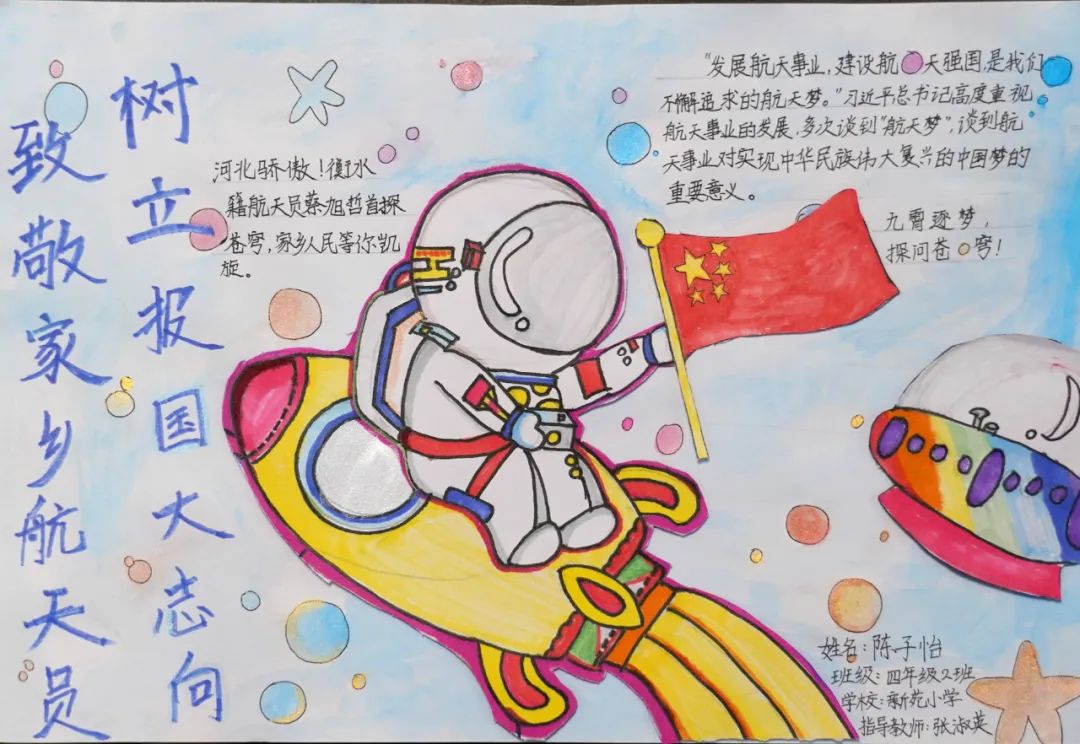 致敬家乡航天员
树立报国大志向
河北骄傲！衡水
籍航天员蔡旭哲首探
苍穹，家乡人民等你凯
旋。
"发展航天事业，建设航天强国，是我们
不懈追求的航天梦。"习近平总书记高度重视
航天事业的发展，多次谈到"航天梦"，谈到航
天事业对实现中华民族伟大复兴的中国梦的
重要意义。
九霄逐梦，
探问苍穹！
姓名：陈子怡
班级：四年级2班
学校：新苑小学
指导教师：张淑英